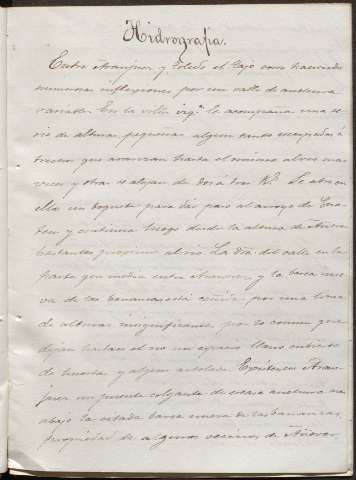 Hidrografia.
Entre Aranjuez y Toledo el Tajo corre haciendo
numerosas inflexiones por un valle de anchura
variable. En la orilla izqª le acompaña una se
rie de alturas pequeñas algun tanto escarpadas á
trechos que avanzan hasta el mismo alveo una
vez y otras se alejan de dos á tres Kº. Se abre en
ellas un boquete para dar paso al arroyo de
y continua luego desde la altura de Añover
bastante proximo al rio. La dra. del valle en la
parte que media entre Aranjuez y la barca nue
va de las bananzas, está ceñida por una linea
de alturas insignificantes por lo comun que
dejan hasta el rio un espacio llano cubierto
de huertas y algun arbolado. Existe en Aran
juez un puente colgante de escasa anchura mas
abajo la citada barca nueva de las bananzas,
propiedad de algunos vecinos de Añover